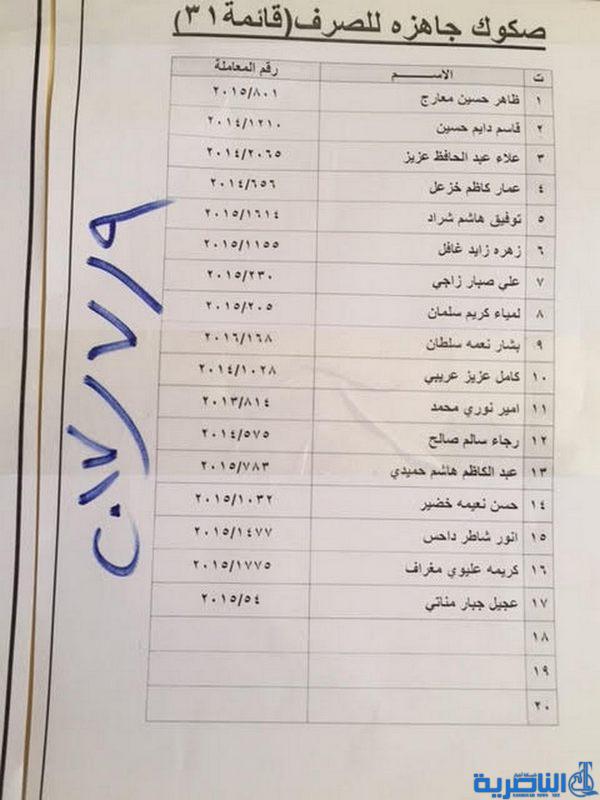 صكوك جاهزه للصرف(قائمة٣١)
ت الاســـم رقم المعاملة
١ ظاهر حسين معارج ٢٠١٥/٨٠١
٢ قاسم دايم حسين ٢٠١٤/١٢١٠
٣ علاء عبد الحافظ عزيز ٢٠١٤/٢٠٦٥
٤ عمار كاظم خزعل ٢٠١٤/٦٥٦
٥ توفيق هاشم شراد ٢٠١٥/١٦١٤
٦ زهره زايد غافل ٢٠١٥/١١٥٥
٧ علي صبار زاجي ٢٠١٥/٢٣٠
٨ لمياء كريم سلمان ٢٠١٥/٢٠٥
٩ بشار نعمه سلطان ٢٠١٦/١٦٨
١٠ كامل عزيز عريبي ٢٠١٤/١٠٢٨
١١ امير نوري محمد ٢٠١٣/٨١٤
١٢ رجاء سالم صالح ٢٠١٤/٥٧٥
١٣ عبد الكاظم هاشم حميدي ٢٠١٥/٧٨٣
١٤ حسن نعيمه خضير ٢٠١٥/١٠٣٢
١٥ انور شاطر داحس ٢٠١٥/١٤٧٧
١٦ كريمه عليوي مغراف ٢٠١٥/١٧٧٥
١٧ عجيل جبار مناتي ٢٠١٥/٥٤
١٨
١٩
٢٠
٢٠١٧/٧/٩
الناصرية